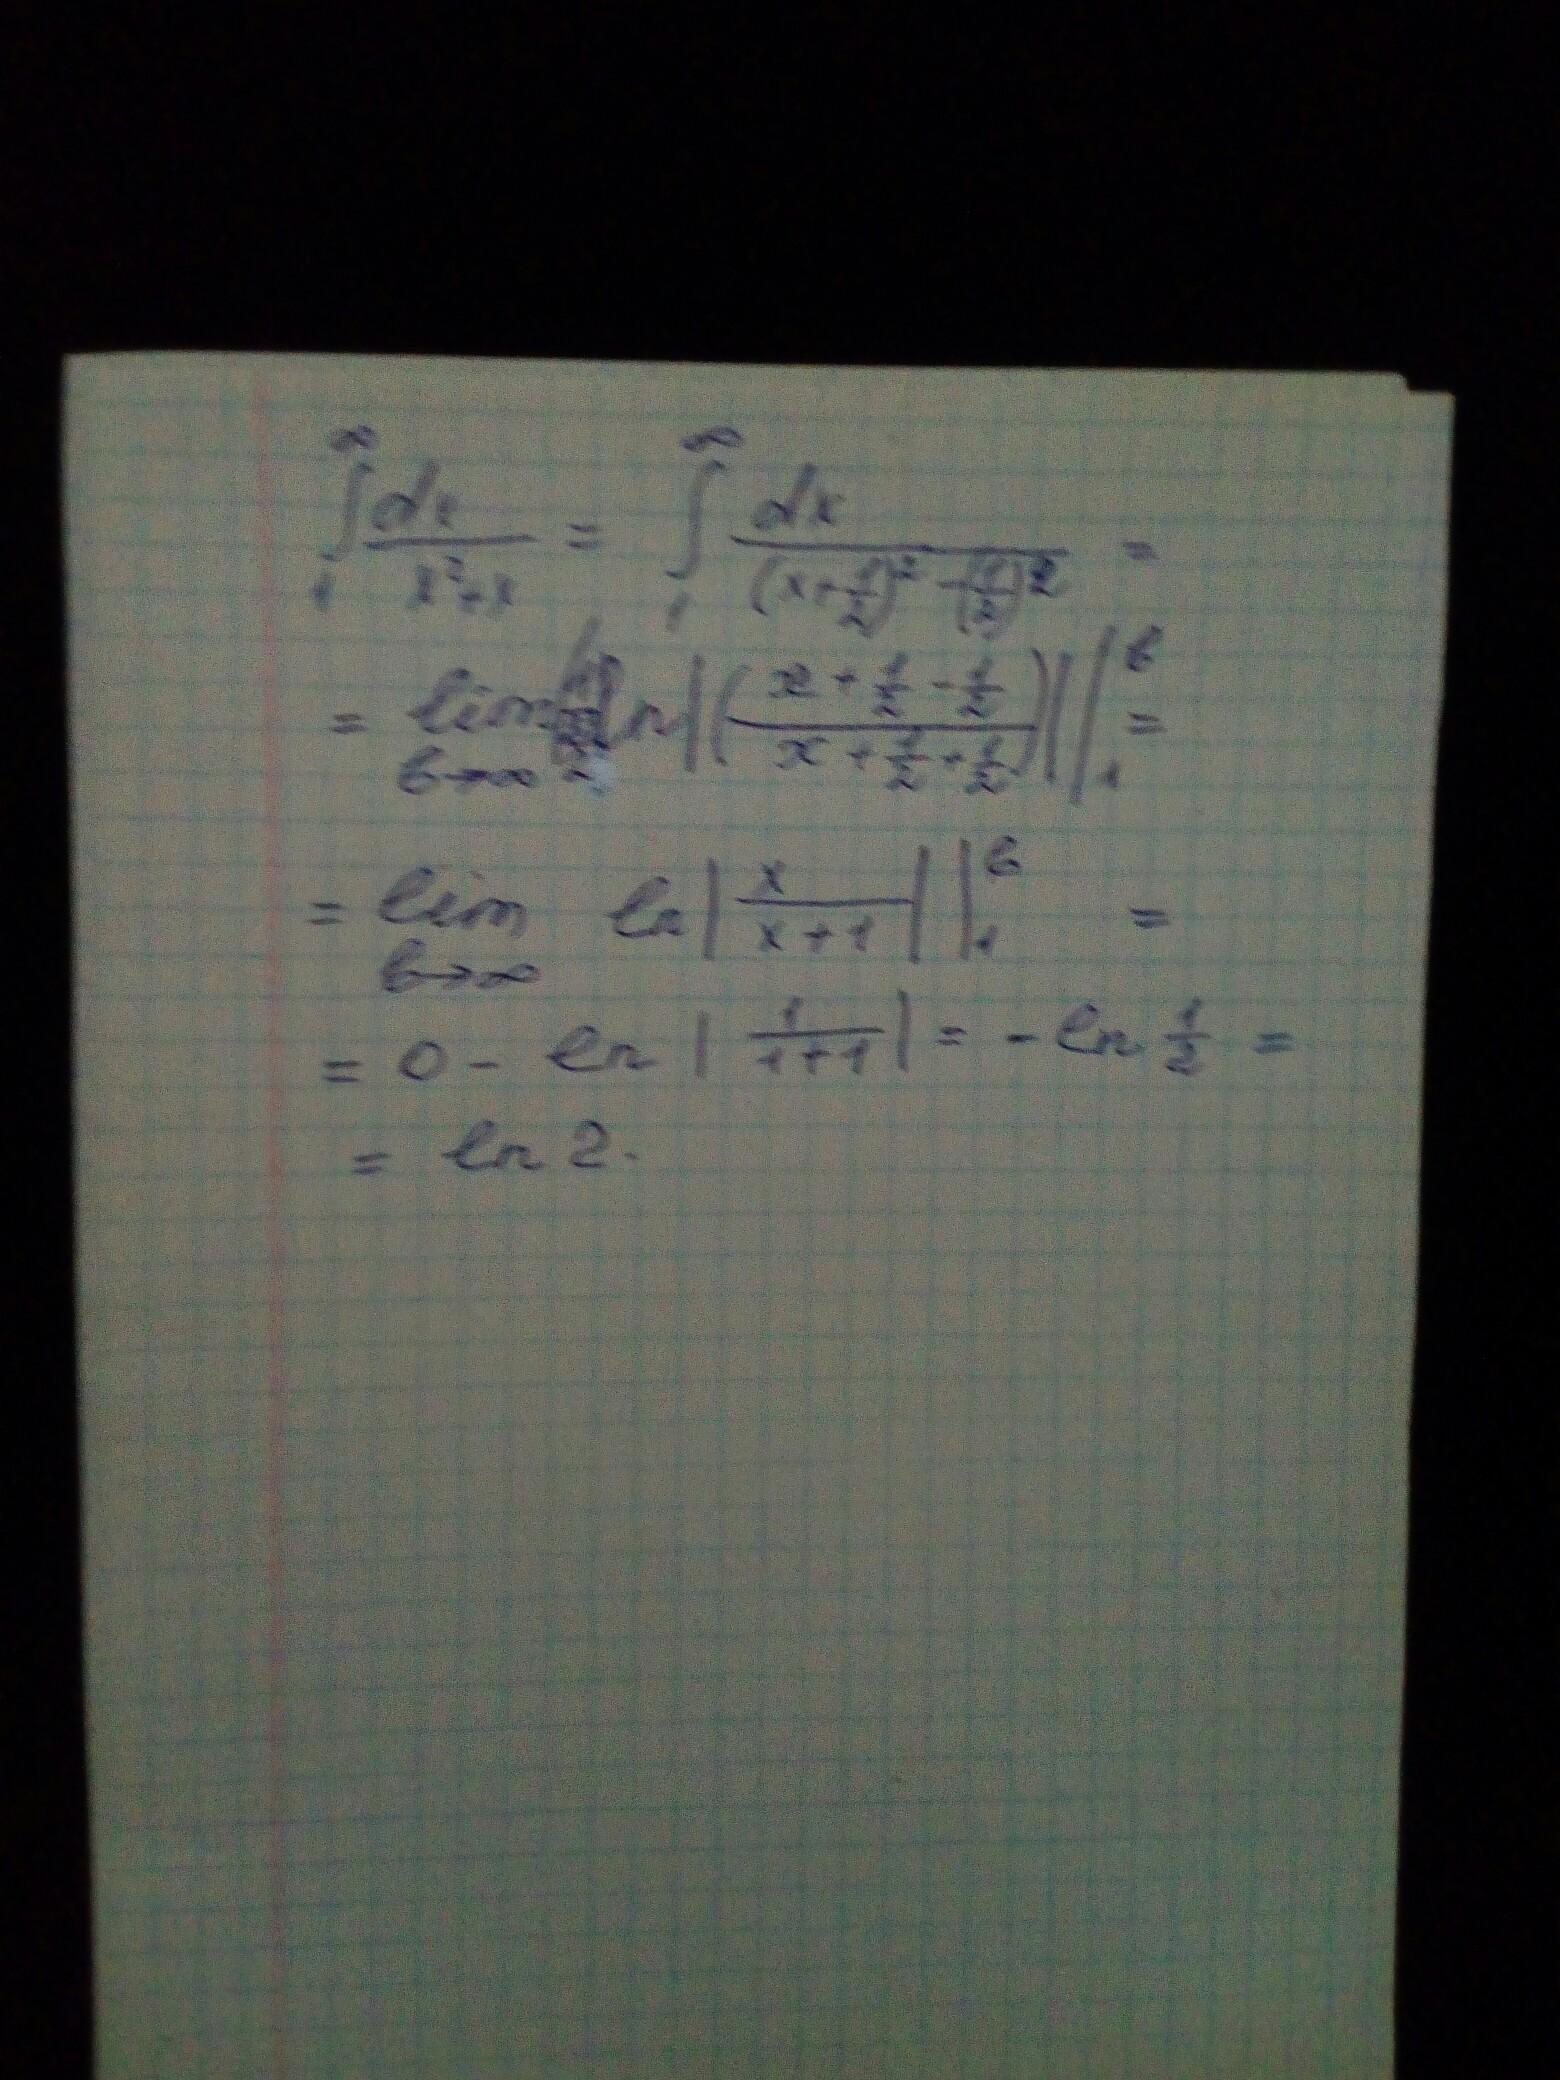 ∫₁^∞ dx/(x²+x) = ∫₁^∞ dx/((x+1/2)²-(1/2)²) =
= lim b→∞ ln|((x+1/2-1/2)/(x+1/2+1/2))| |₁^b =
= lim b→∞ ln|x/(x+1)| |₁^b =
= 0 - ln|1/(1+1)| = -ln 1/2 =
= ln 2.